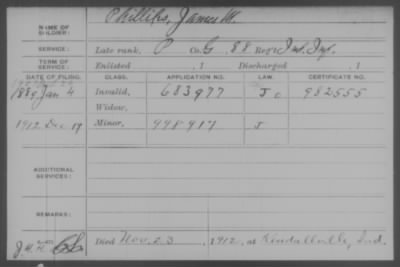 NAME OF SOLDIER: Phillips, James M.
SERVICE: Late rank, P Co. G, 88 Reg't Ind. Inf.
TERM OF SERVICE: Enlisted , 1 Discharged , 1
DATE OF FILING. CLASS. APPLICATION NO. LAW. CERTIFICATE NO.
1889 Jan 4 Invalid, 683977 J c 982555
Widow,
1912 Dec 17 Minor, 998917 J
ADDITIONAL SERVICES:
REMARKS:
Died Nov. 23, 1912, at Kendallville, Ind.